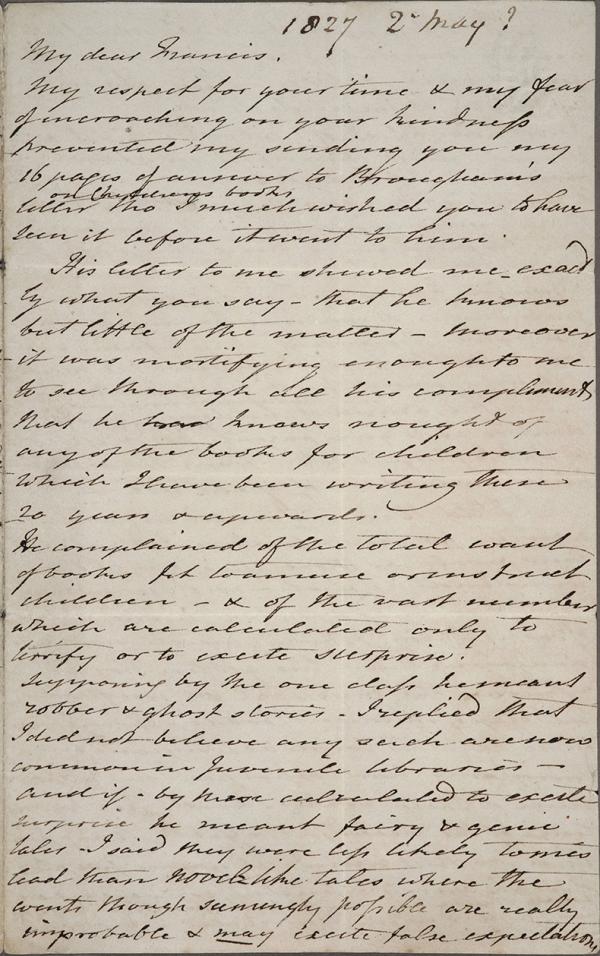 1827 2d May?
My dear Francis.
My respect for your time & my fear
of incroaching on your kindness
prevented my sending you my
16 pages of answer to Brougham's
on Childrens books
letter tho I much wished you to have
seen it before it went to him.
His letter to me shewed me exact
ly what you say - that he knows
but little of the matter - moreover
it was mortifying enough to me
to see through all his compliments
that he knows nought of
any of the books for children
which I have been writing these
20 years & upwards.
He complained of the total want
of books fit to amuse or instruct
children - & of the vast number
which are calculated only to
terrify or to excite surprise.
Supposing by the one class he meant
robber & ghost stories - I replied that
I did not believe any such are now
common in Juvenile libraries -
and if - by those calculated to excite
surprise he meant fairy & genie
tales - I said they were less likely to mis
lead than novel-like tales where the
events though seemingly possible are really
improbable & may excite false expectations